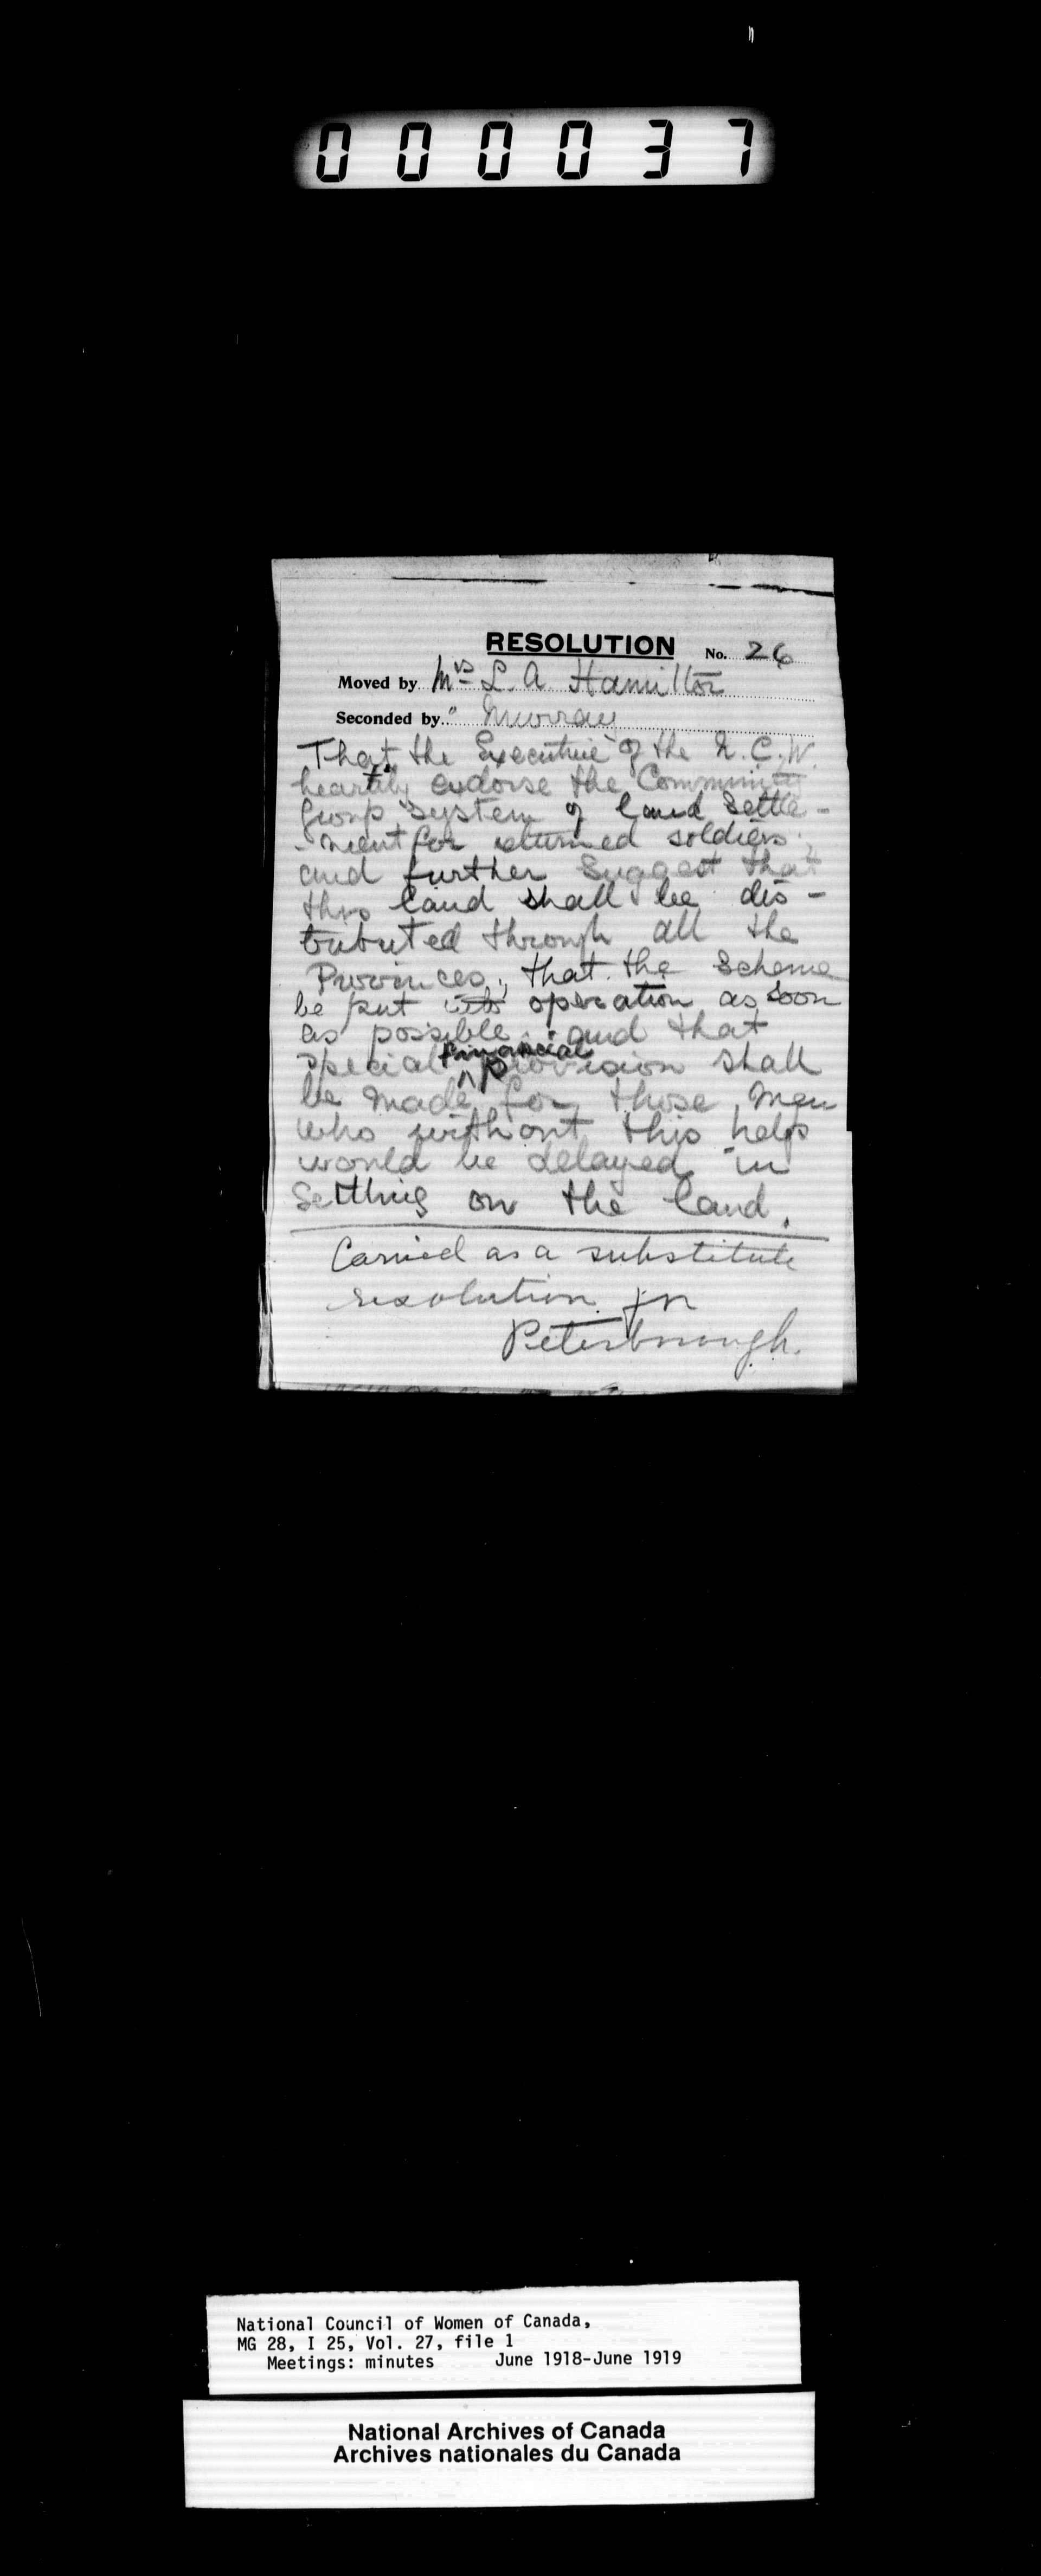 000037
RESOLUTION No. 26
Moved by Mrs L. A. Hamilton
Seconded by " Murray
That the Executive of the N. C. W.
heartily endorse the Community
Group system of land settle-
-ment for returned soldiers;
and further suggest that
this land shall be dis-
tributed through all the
Provinces, that the scheme
be put into operation as soon
as possible; and that
special financial provision shall
be made for those men
who without this help
would be delayed in
settling on the land.
Carried as a substitute
resolution for
Peterborough.
National Council of Women of Canada,
MG 28, I 25, Vol. 27, file 1
Meetings: minutes June 1918-June 1919
National Archives of Canada
Archives nationales du Canada